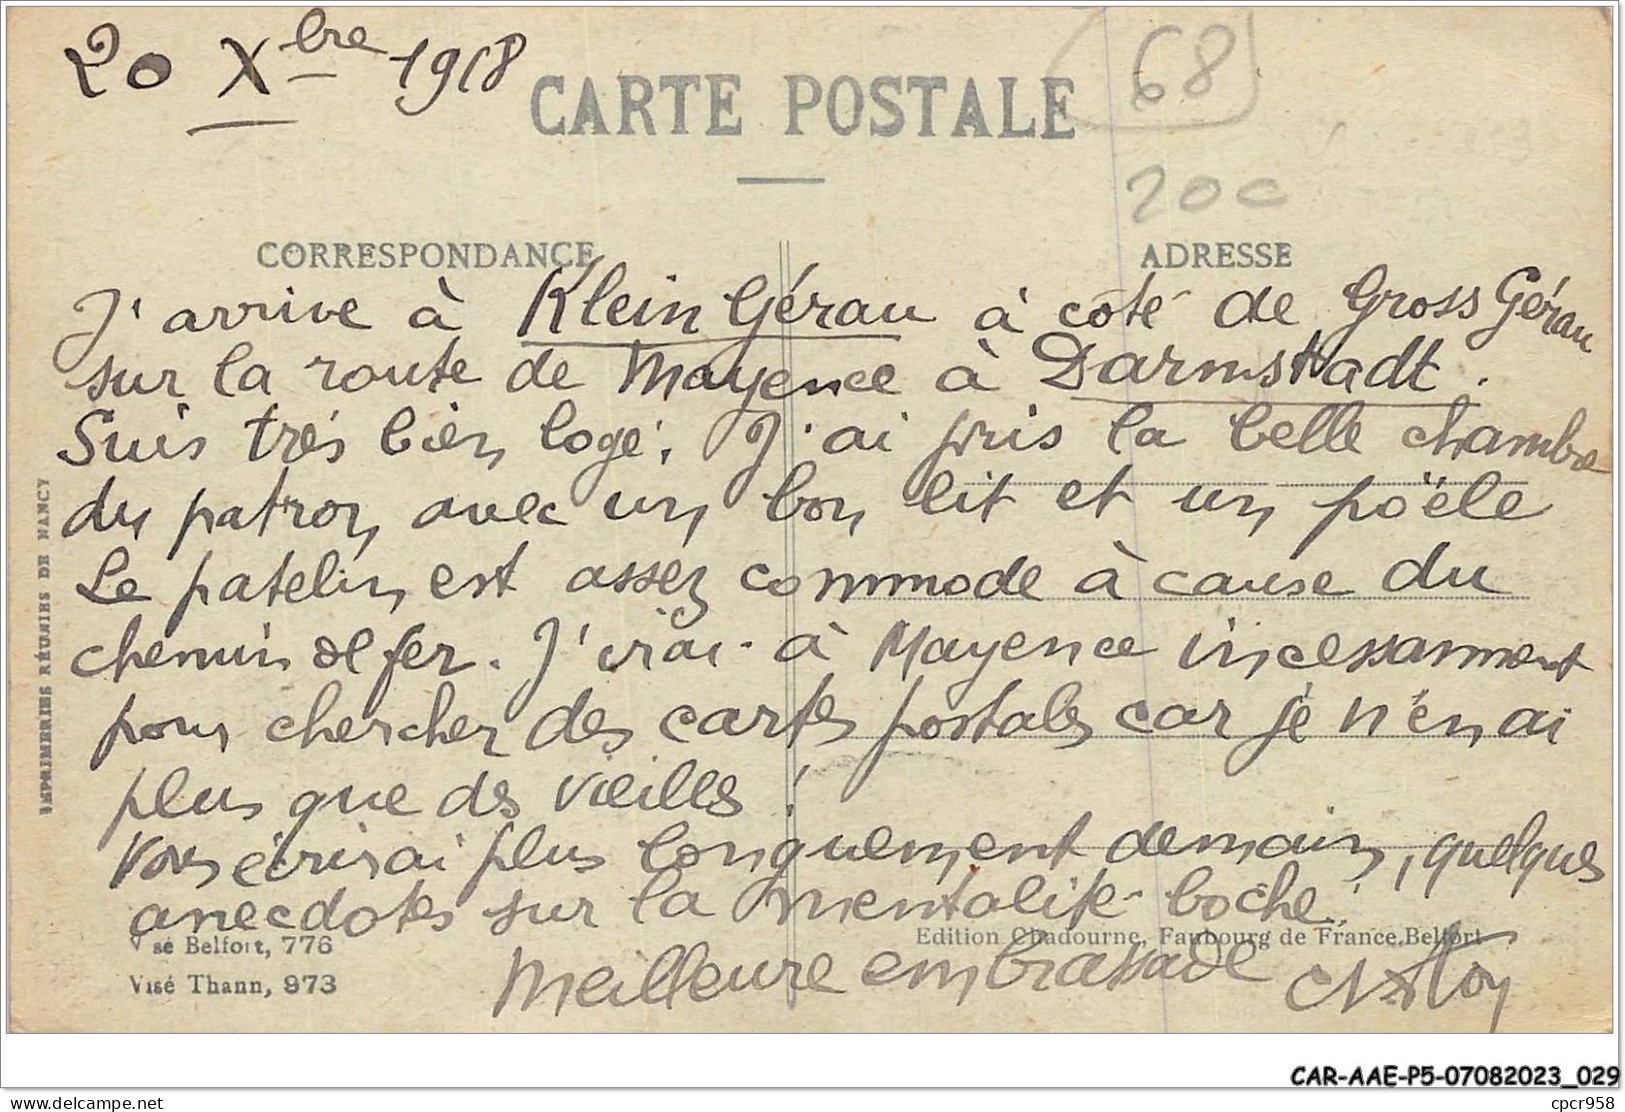 20 Xbre 1918
68
CARTE POSTALE
20c
CORRESPONDANCE
ADRESSE
J'arrive à Klein Gérau à côté de Gross Gérau
sur la route de Mayence à Darmstadt.
Suis très bien logé. J'ai pris la belle chambre
du patron avec un bon lit et un poële
Le patelin est assez commode à cause du
chemin de fer. J'irai à Mayence incessamment
pour chercher des cartes postales car je n'en ai
plus que des vieilles !
Vous écrirai plus longuement demain, quelques
anecdotes sur la mentalité boche.
Meilleure embrassade
Visé Belfort, 776
Visé Thann, 973
Edition Chadourne, Faubourg de France, Belfort
IMPRIMERIES RÉUNIES DE NANCY
CAR-AAE-P5-07082023_029
www.delcampe.net
cpcr958